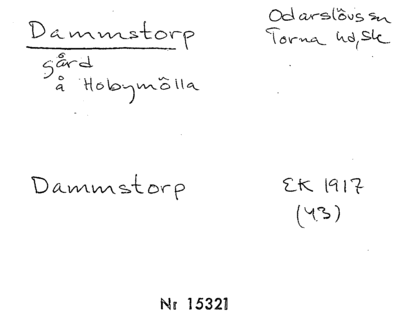 Dammstorp
Odarslövs sn
Torna hd, Sk
gård
å Hobymölla
Dammstorp
EK 1917
(43)
Nr 15321